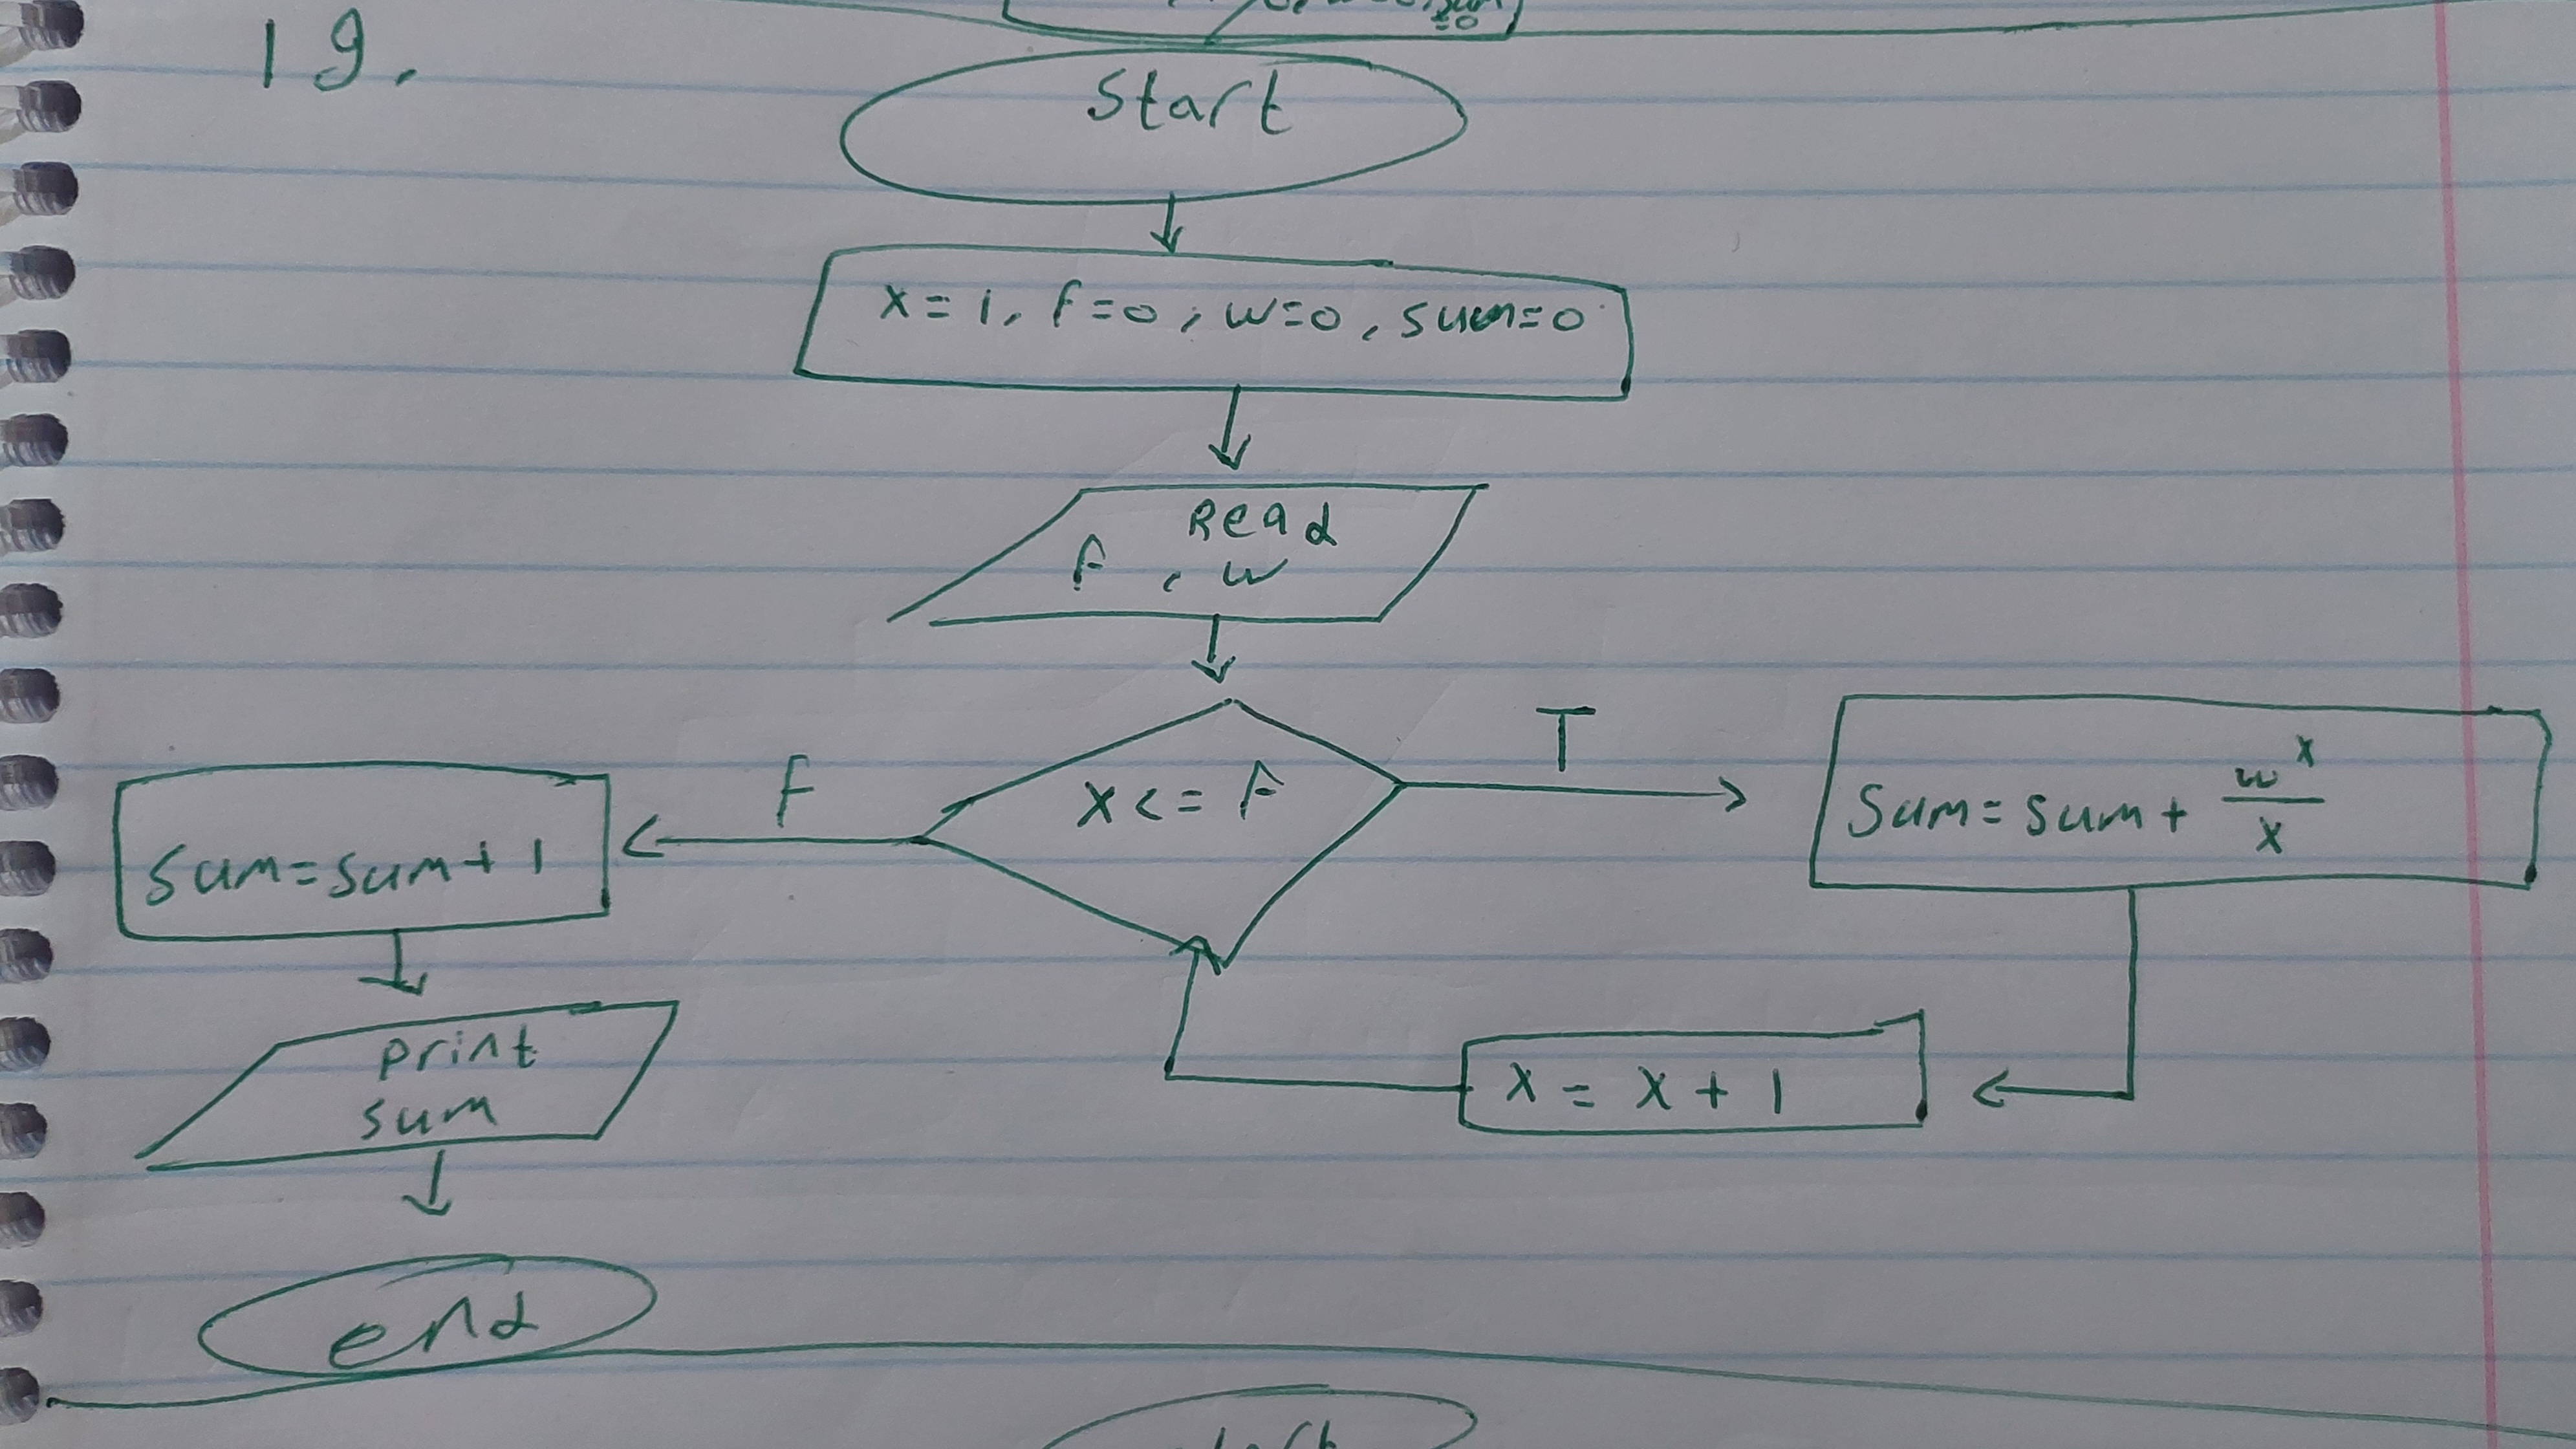 =0
19.
Start
x = 1, f=0, w=0, sum=0
Read
f , w
x <= f
T
F
sum = sum + w^x/x
sum = sum + 1
x = x + 1
print
sum
end